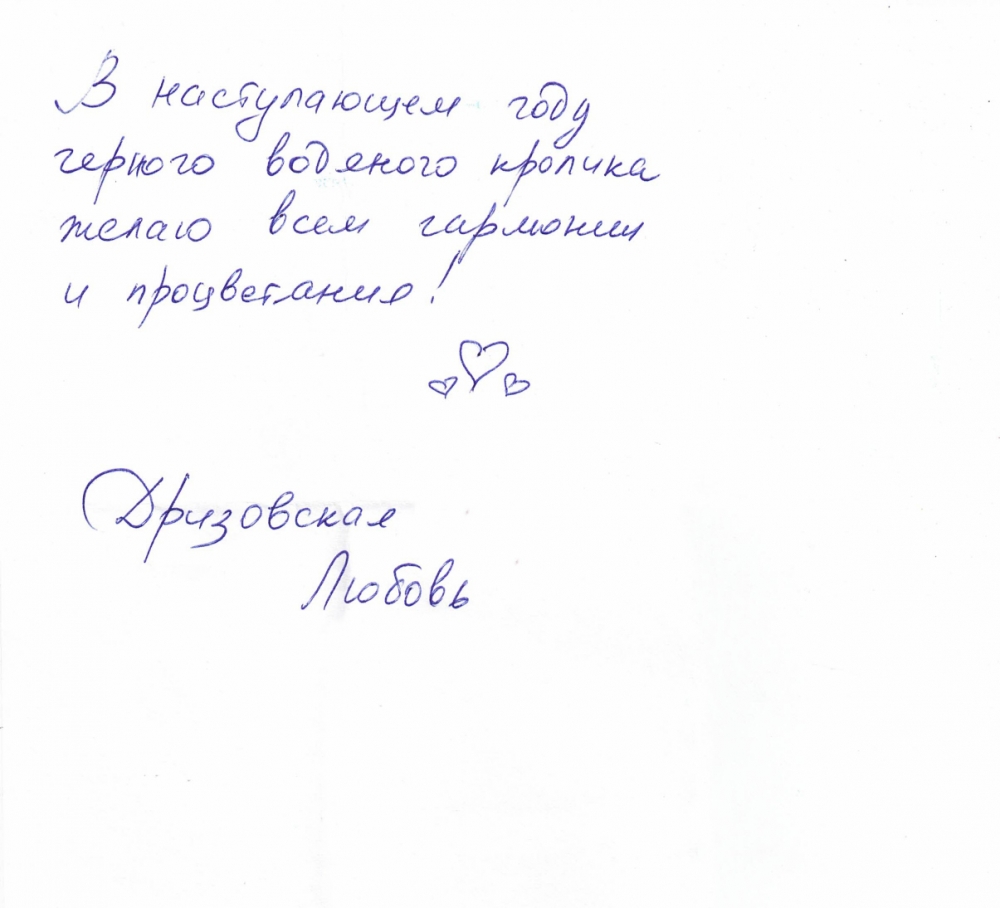 В наступающем году
черного водяного кролика
желаю всем гармонии
и процветания!
Дризовская
Любовь